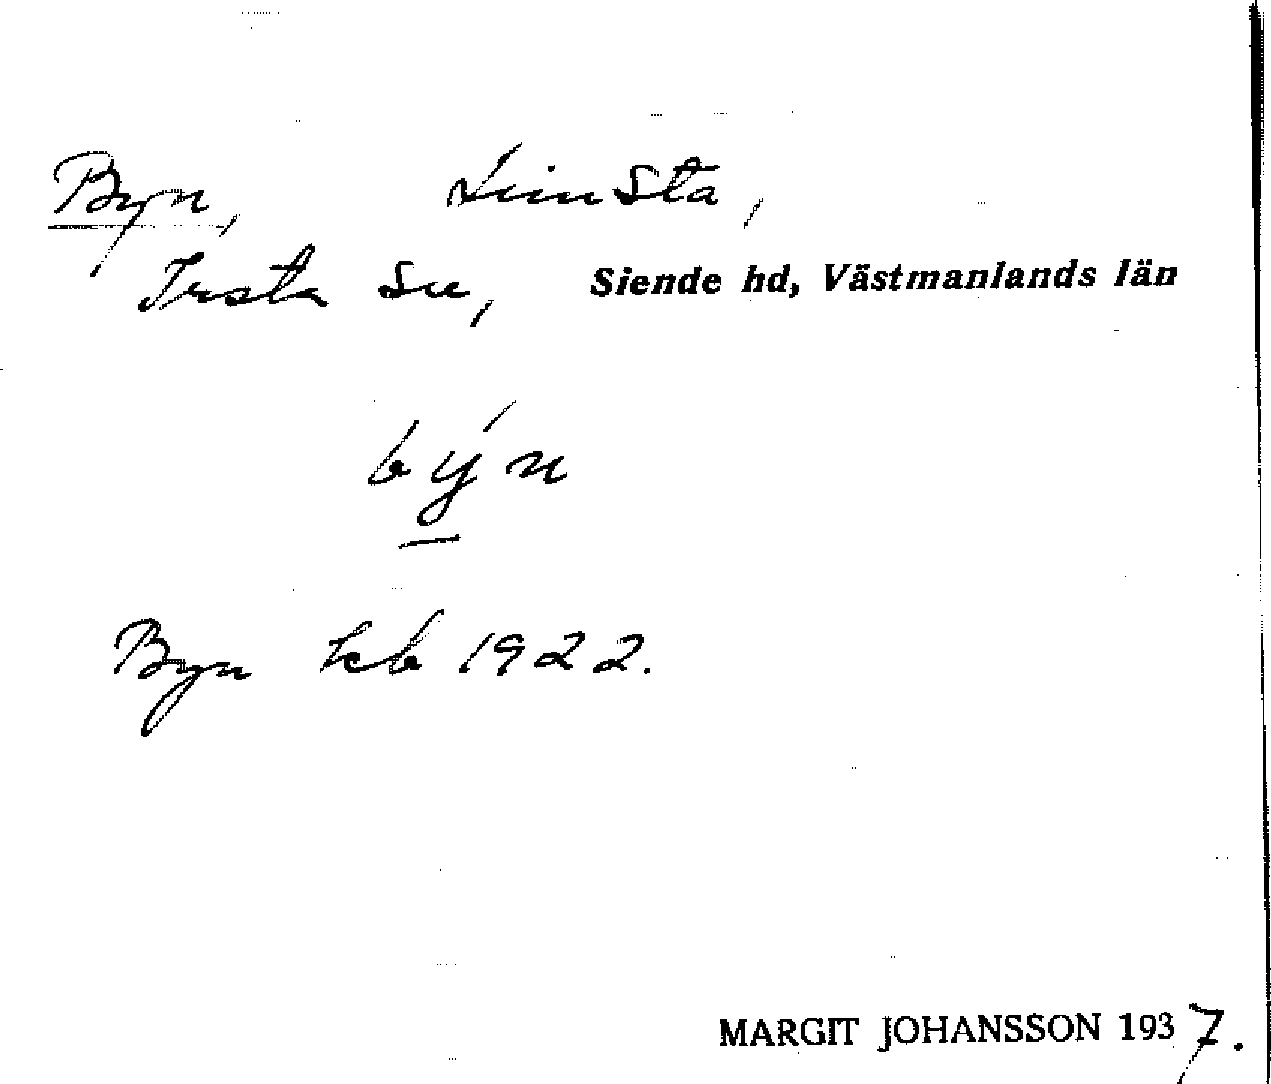 Byn, Limsta,
Irsta Sn, Siende hd, Västmanlands län
býn
Byn kb 1922.
MARGIT JOHANSSON 1937.